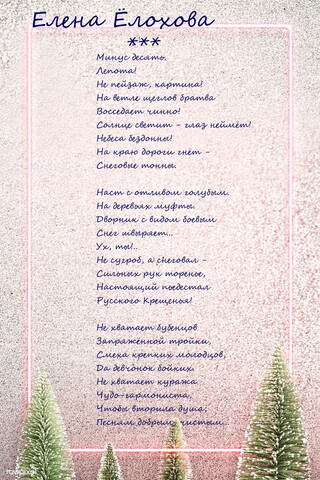 Елена Ёлохова
***
Минус десять.
Лепота!
Не пейзаж, картина!
На ветле щеглов братва
Восседает чинно!
Солнце светит - глаз неймёт!
Небеса бездонны!
На краю дороги гнёт -
Снеговые тонны.
Наст с отливом голубым.
На деревьях муфты.
Дворник с видом боевым
Снег швыряет...
Ух, ты!..
Не сугроб, а снеговал -
Сильных рук торенье,
Настоящий пьедестал
Русского Крещенья!
Не хватает бубенцов
Запряжённой тройки,
Смеха крепких молодцов,
Да девчонок бойких.
Не хватает куража
Чудо-гармониста,
Чтобы вторила душа
Песням добрым, чистым...
rawpixel